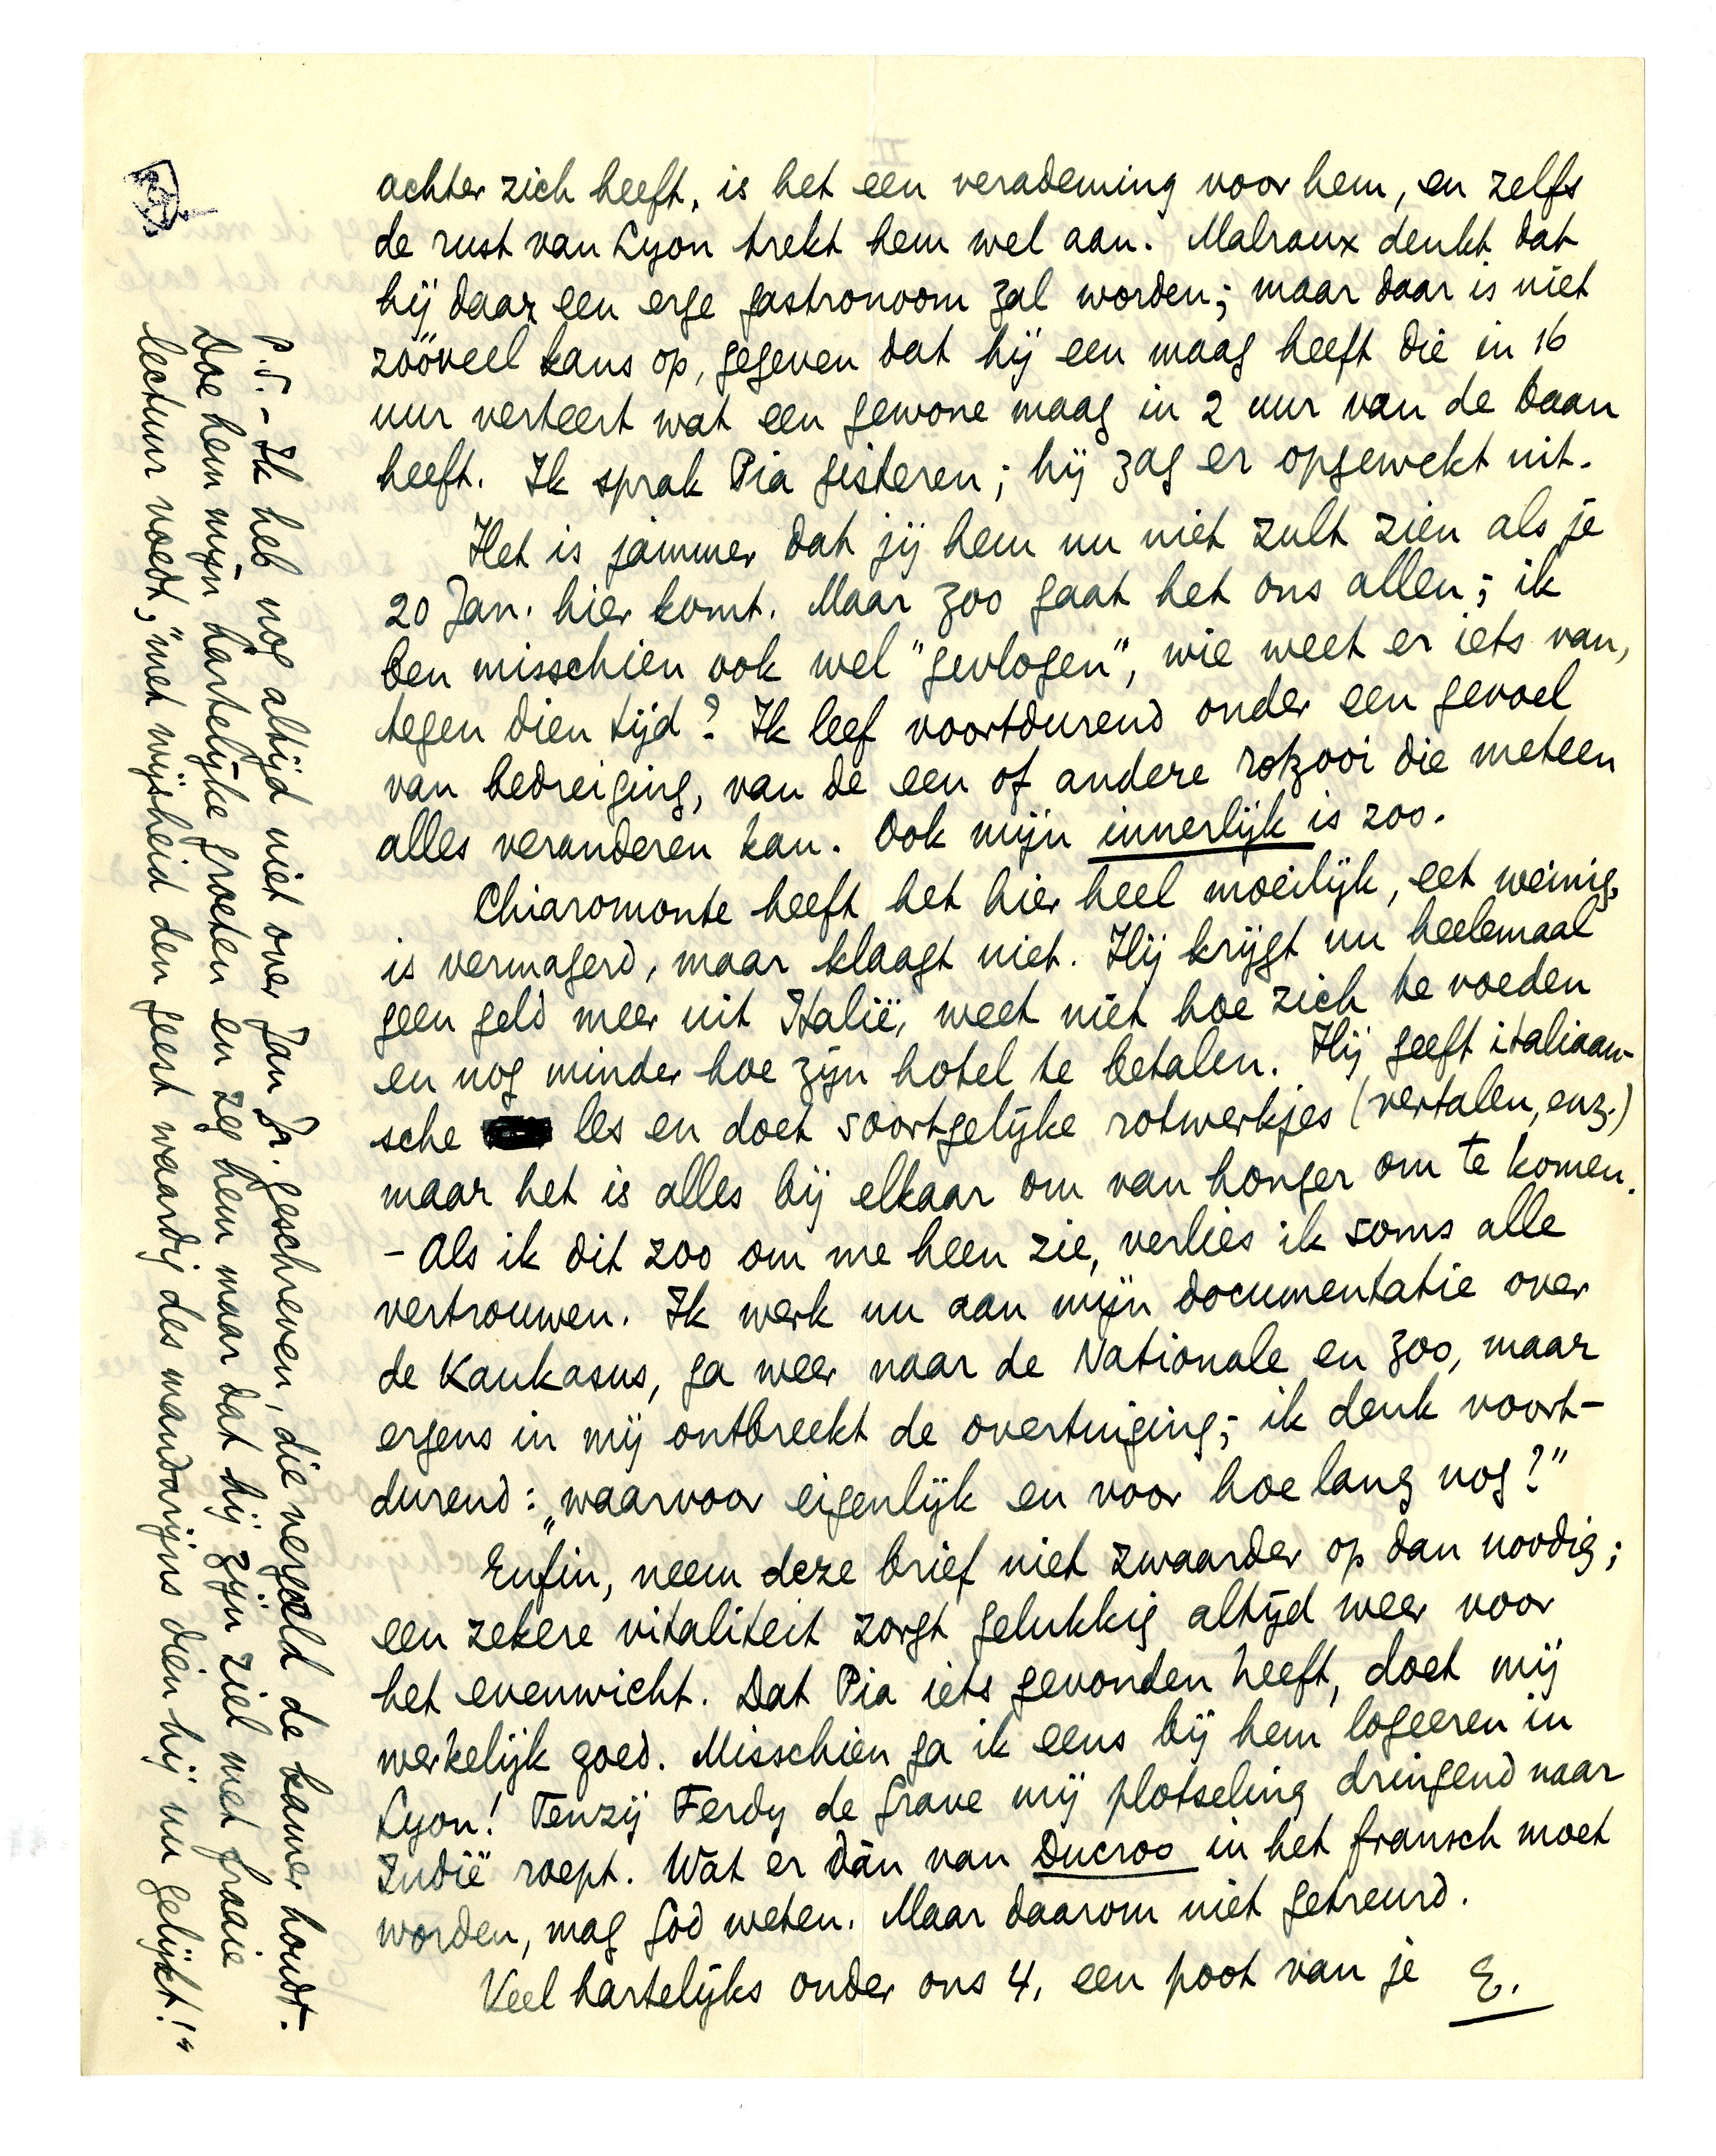 achter zich heeft, is het een verademing voor hem, en zelfs
de rust van Lyon trekt hem wel aan. Malraux denkt dat
hij daar een erge gastronoom zal worden; maar daar is niet
zóóveel kans op, gegeven dat hij een maag heeft die in 16
uur verteert wat een gewone maag in 2 uur van de baan
heeft. Ik sprak Pia gisteren; hij zag er opgewekt uit.
Het is jammer dat jij hem nu niet zult zien als je
20 Jan. hier komt. Maar zoo gaat het ons allen; ik
ben misschien ook wel "gevlogen", wie weet er iets van,
tegen dien tijd? Ik leef voortdurend onder een gevoel
van bedreiging, van de een of andere rotzooi die meteen
alles veranderen kan. Ook mijn innerlijk is zoo.
Chiaromonte heeft het hier heel moeilijk, eet weinig,
is vermagerd, maar klaagt niet. Hij krijgt nu heelemaal
geen geld meer uit Italië, weet niet hoe zich te voeden
en nog minder hoe zijn hotel te betalen. Hij geeft italiaan-
sche les en doet soortgelijke rotwerkjes (vertalen, enz.)
maar het is alles bij elkaar om van honger om te komen.
– Als ik dit zoo om me heen zie, verlies ik soms alle
vertrouwen. Ik werk nu aan mijn documentatie over
de Kaukasus, ga weer naar de Nationale en zoo, maar
ergens in mij ontbreekt de overtuiging; ik denk voort-
durend: „waarvoor eigenlijk en voor hoe lang nog?”
Enfin, neem deze brief niet zwaarder op dan noodig;
een zekere vitaliteit zorgt gelukkig altijd weer voor
het evenwicht. Dat Pia iets gevonden heeft, doet mij
werkelijk goed. Misschien ga ik eens bij hem logeeren in
Lyon! Tenzij Ferdy de Grave mij plotseling dringend naar
Indië roept. Wat er dàn van Ducroo in het fransch moet
worden, mag God weten. Maar daarom niet getreurd.
Veel hartelijks onder ons 4, een poot van je E.
P.S. – Ik heb nog altijd niet over Jan Gr. geschreven, die vergoeld de kamer houdt.
Doe hem mijn hartelijke groeten en zeg hem maar dat hij zijn ziel met fraaie
lectuur voedt, "met wijsheid den geest waardig des mandarijns dien hij nu gelijkt!"